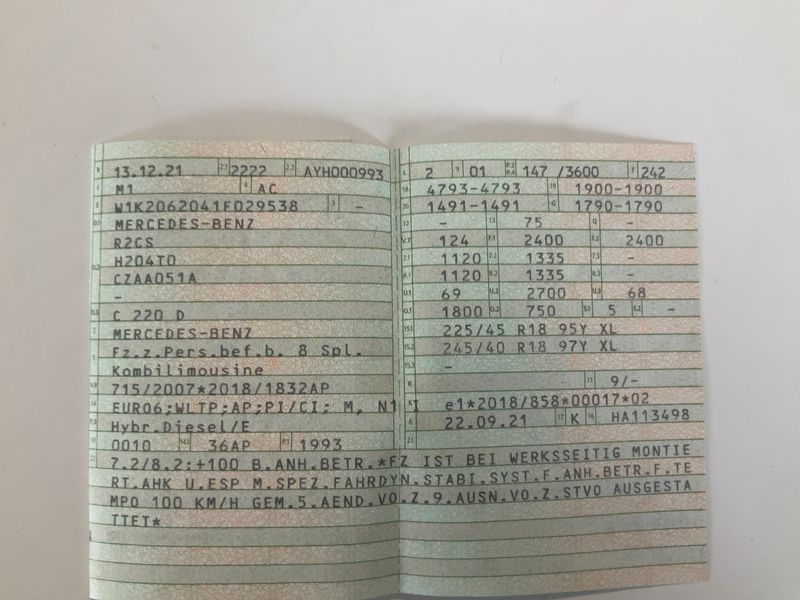 B 13.12.21 2.1 2222 2.2 AYH000993
J M1 4 AC
E W1K2062041F029538 3 –
D.1 MERCEDES-BENZ
R2CS
D.2 H204T0
CZAA051A
–
D.3 C 220 D
2 MERCEDES-BENZ
5 Fz.z.Pers.bef.b. 8 Spl.
Kombilimousine
V.9 715/2007*2018/1832AP
14 EURO6;WLTP;AP;PI/CI; M, N1 I
P.3 Hybr.Diesel/E
10 0010 14.1 36AP P.1 1993
L 2 9 01 P.2 P.4 147 /3600 T 242
18 4793-4793 19 1900-1900
20 1491-1491 G 1790-1790
12 – 13 75 Q –
V.7 124 F.1 2400 F.2 2400
7.1 1120 7.2 1335 7.3 –
8.1 1120 8.2 1335 8.3 –
U.1 69 U.2 2700 U.3 68
O.1 1800 O.2 750 S.1 5 S.2 –
15.1 225/45 R18 95Y XL
15.2 245/40 R18 97Y XL
15.3 –
R 11 9/–
K e1*2018/858*00017*02
6 22.09.21 17 K 16 HA113498
21
22 7.2/8.2:+100 B.ANH.BETR.*FZ IST BEI WERKSSEITIG MONTIE
RT.AHK U.ESP M.SPEZ.FAHRDYN.STABI.SYST.F.ANH.BETR.F.TE
MPO 100 KM/H GEM.5.AEND.VO.Z.9.AUSN.VO.Z.STVO AUSGESTA
TTET*